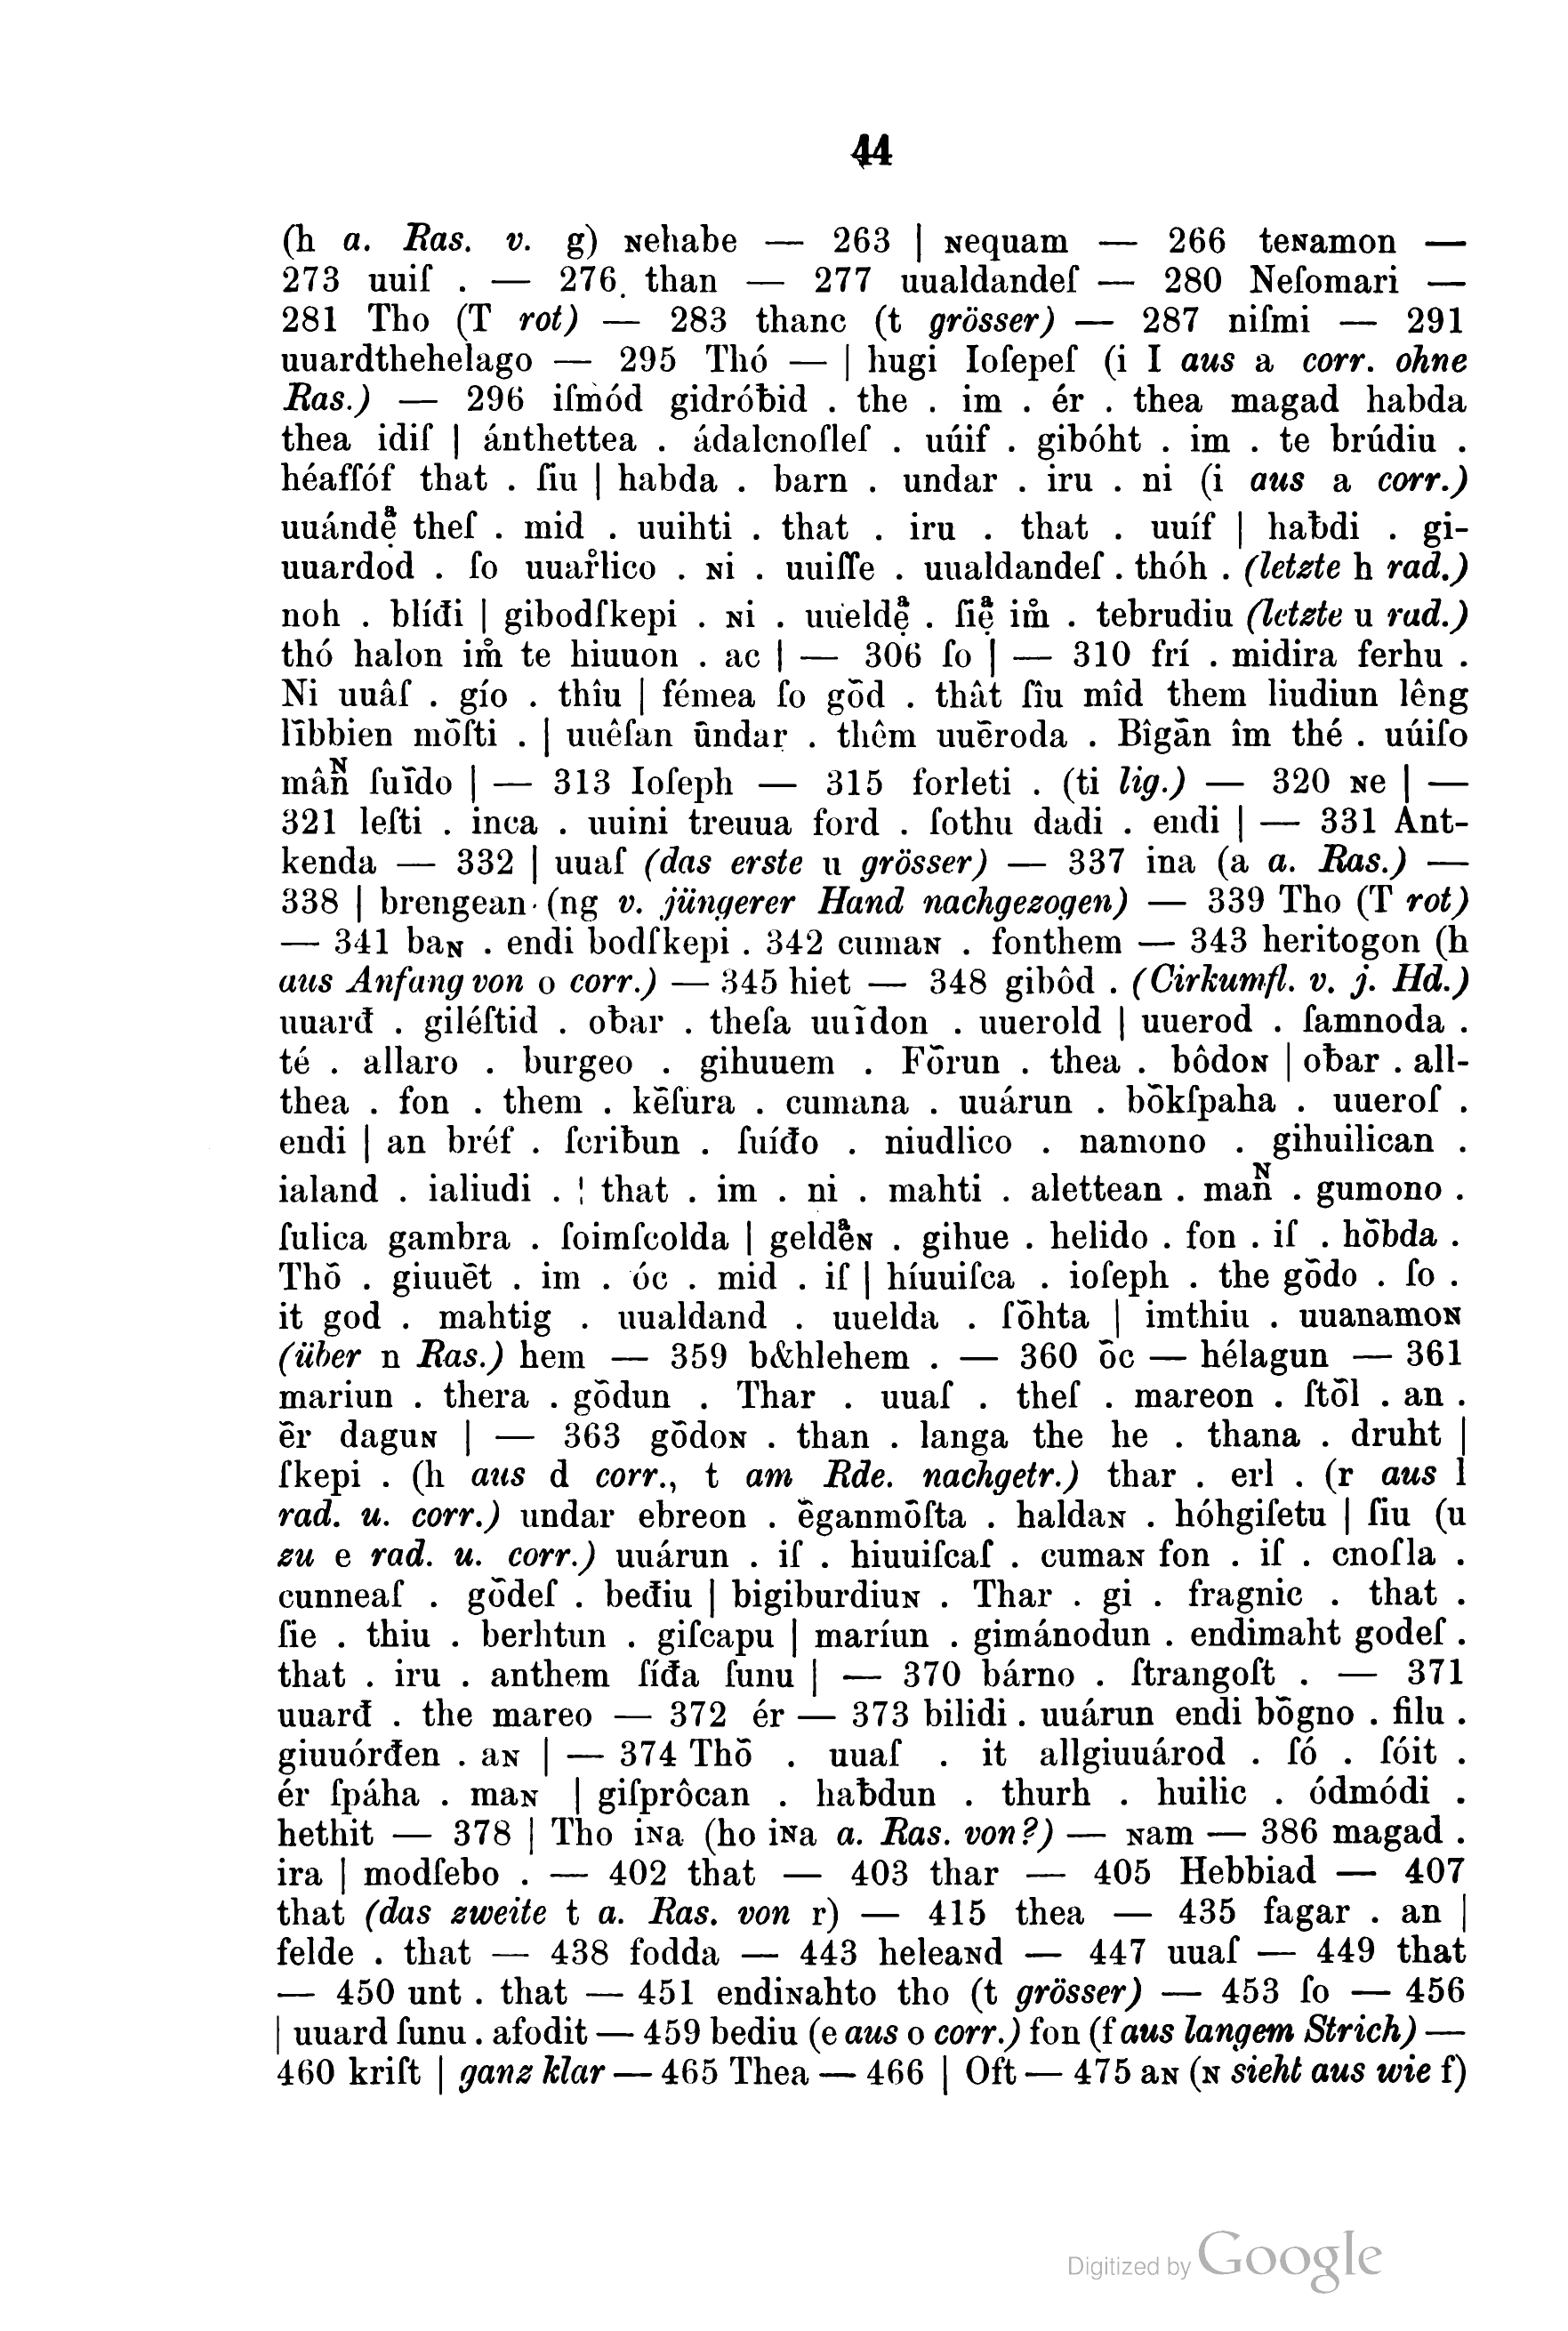 44
(h a. Ras. v. g) ɴehabe — 263 | ɴequam — 266 teɴamon —
273 uuiſ . — 276. than — 277 uualdandeſ — 280 Neſomari —
281 Tho (T rot) — 283 thanc (t grösser) — 287 niſmi — 291
uuardthehelago — 295 Thó — | hugi Ioſepeſ (i I aus a corr. ohne
Ras.) — 296 iſmód gidróƀid . the . im . ér . thea magad habda
thea idiſ | ánthettea . ádalcnoſleſ . uúif . gibóht . im . te brúdiu .
héaffóf that . ſiu | habda . barn . undar . iru . ni (i aus a corr.)
uuándẹͣ theſ . mid . uuihti . that . iru . that . uuíf | haƀdi . gi-
uuardod . ſo uuar̊lico . ɴi . uuiſſe . uualdandeſ . thóh . (letzte h rad.)
noh . blíđi | gibodſkepi . ɴi . uueldẹͣ . ſiẹͣ im̊ . tebrudiu (letzte u rad.)
thó halon im̊ te hiuuon . ac | — 306 ſo | — 310 frí . midira ferhu .
Ni uuâſ . gío . thîu | fémea ſo gōd . thât ſîu mîd them liudiun lêng
lībbien mōſti . | uuêſan ūndar . thêm uuēroda . Bîgān îm thé . uúiſo
mân̄ᶰ ſuīdo | — 313 Ioſeph — 315 forleti . (ti lig.) — 320 ɴe | —
321 leſti . inca . uuini treuua ford . ſothu dadi . endi | — 331 Ant-
kenda — 332 | uuaſ (das erste u grösser) — 337 ina (a a. Ras.) —
338 | brengean· (ng v. jüngerer Hand nachgezogen) — 339 Tho (T rot)
— 341 baɴ . endi bodſkepi . 342 cumaɴ . fonthem — 343 heritogon (h
aus Anfang von o corr.) — 345 hiet — 348 gibôd . (Cirkumfl. v. j. Hd.)
uuarđ . giléſtid . oƀar . theſa uuīdon . uuerold | uuerod . ſamnoda .
té . allaro . burgeo . gihuuem . Fōrun . thea . bôdoɴ | oƀar . all-
thea . fon . them . kēſura . cumana . uuárun . bōkſpaha . uueroſ .
endi | an bréf . ſcriƀun . ſuíđo . niudlico . namono . gihuilican .
ialand . ialiudi . ¦ that . im . ni . mahti . alettean . man̄ᶰ . gumono .
ſulica gambra . ſoimſcolda | geldeͣɴ . gihue . helido . fon . iſ . hōbda .
Thō . giuuēt . im . óc . mid . iſ | híuuiſca . ioſeph . the gōdo . ſo .
it god . mahtig . uualdand . uuelda . ſōhta | imthiu . uuanamoɴ
(über n Ras.) hem — 359 b&hlehem . — 360 ōc — hélagun — 361
mariun . thera . gōdun . Thar . uuaſ . theſ . mareon . ſtōl . an .
ēr daguɴ | — 363 gōdoɴ . than . langa the he . thana . druht |
ſkepi . (h aus d corr., t am Rde. nachgetr.) thar . erl . (r aus l
rad. u. corr.) undar ebreon . ēganmōſta . haldaɴ . hóhgiſetu | ſiu (u
zu e rad. u. corr.) uuárun . iſ . hiuuiſcaſ . cumaɴ fon . iſ . cnoſla .
cunneaſ . gōdeſ . beđiu | bigiburdiuɴ . Thar . gi . fragnic . that .
ſie . thiu . berhtun . giſcapu | maríun . gimánodun . endimaht godeſ .
that . iru . anthem ſíđa ſunu | — 370 bárno . ſtrangoſt . — 371
uuarđ . the mareo — 372 ér — 373 bilidi . uuárun endi bōgno . filu .
giuuórđen . aɴ | — 374 Thō . uuaſ . it allgiuuárod . ſó . ſóit .
ér ſpáha . maɴ | giſprôcan . haƀdun . thurh . huilic . ódmódi .
hethit — 378 | Tho iɴa (ho iɴa a. Ras. von?) — ɴam — 386 magad .
ira | modſebo . — 402 that — 403 thar — 405 Hebbiad — 407
that (das zweite t a. Ras. von r) — 415 thea — 435 fagar . an |
felde . that — 438 fodda — 443 heleaɴd — 447 uuaſ — 449 that
— 450 unt . that — 451 endiɴahto tho (t grösser) — 453 ſo — 456
| uuard ſunu . afodit — 459 bediu (e aus o corr.) fon (f aus langem Strich) —
460 kriſt | ganz klar — 465 Thea — 466 | Oft — 475 aɴ (ɴ sieht aus wie f)
Digitized by Google